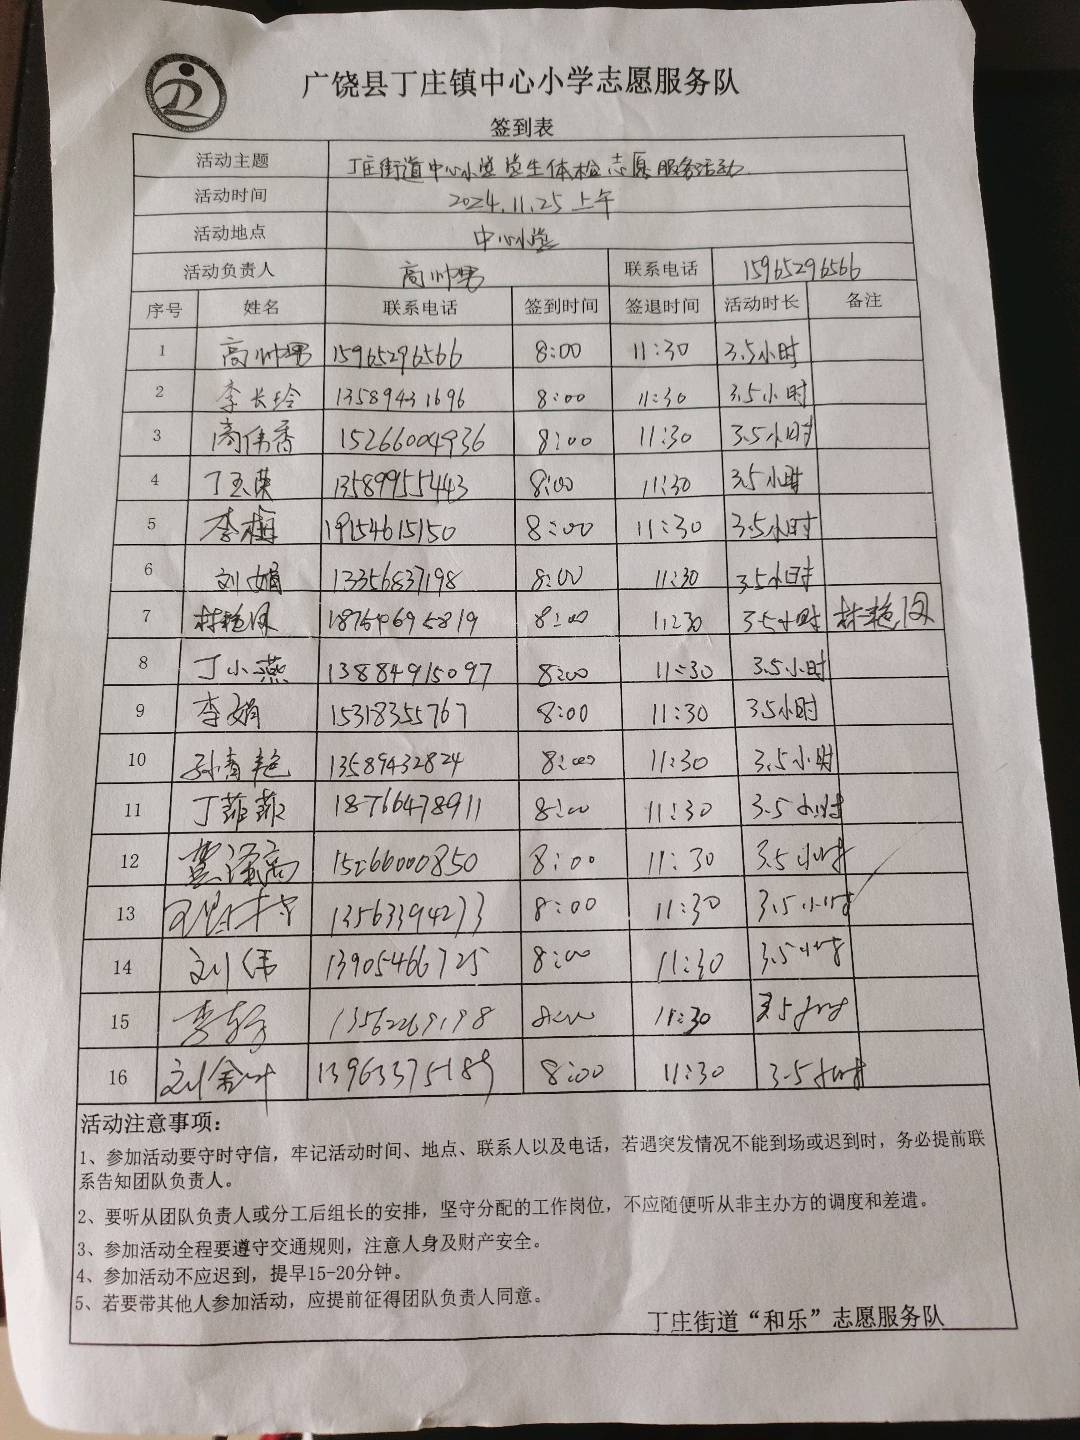 广饶县丁庄镇中心小学志愿服务队
签到表
活动主题 丁庄街道中心小学学生体检志愿服务活动
活动时间 2024.11.25上午
活动地点 中心小学
活动负责人 高帅男 联系电话 15965296566
序号 姓名 联系电话 签到时间 签退时间 活动时长 备注
1 高帅男 15965296566 8:00 11:30 3.5小时
2 李长玲 13589431696 8:00 11:30 3.5小时
3 高伟香 15266004936 8:00 11:30 3.5小时
4 丁玉荣 13589955443 8:00 11:30 3.5小时
5 李梅 19154615150 8:00 11:30 3.5小时
6 刘娟 13356837198 8:00 11:30 3.5小时
7 林艳凤 18754695819 8:00 11:30 3.5小时 林艳凤
8 丁小燕 13884915097 8:00 11:30 3.5小时
9 李娟 15318355767 8:00 11:30 3.5小时
10 孙青艳 13589432824 8:00 11:30 3.5小时
11 丁菲菲 18766478911 8:00 11:30 3.5小时
12 15266000850 8:00 11:30 3.5小时
13 13563394273 8:00 11:30 3.5小时
14 刘伟 13905466725 8:00 11:30 3.5小时
15 8:00 11:30 3.5小时
16 13963375189 8:00 11:30 3.5小时
活动注意事项：
1、参加活动要守时守信，牢记活动时间、地点、联系人以及电话，若遇突发情况不能到场或迟到时，务必提前联
系告知团队负责人。
2、要听从团队负责人或分工后组长的安排，坚守分配的工作岗位，不应随便听从非主办方的调度和差遣。
3、参加活动全程要遵守交通规则，注意人身及财产安全。
4、参加活动不应迟到，提早15-20分钟。
5、若要带其他人参加活动，应提前征得团队负责人同意。
丁庄街道“和乐”志愿服务队